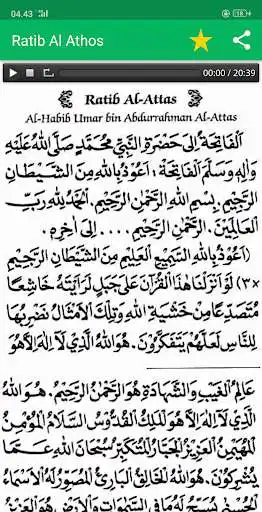 04.43
18
Ratib Al Athos
00:00 / 20:39
Ratib Al-Attas
Al-Habib Umar bin Abdurrahman Al-Attas
اَلْفَاتِحَةُ اِلَى حَضْرَةِ النَّبِيِّ مُحَمَّدٍ صَلَّى اللهُ عَلَيْهِ
وَاٰلِهِ وَسَلَّمَ اَلْفَاتِحَةْ، اَعُوْذُ بِاللهِ مِنَ الشَّيْطَانِ
الرَّجِيْمِ. بِسْمِ اللهِ الرَّحْمٰنِ الرَّحِيْمِ. اَلْحَمْدُ لِلّٰهِ رَبِّ
الْعَالَمِيْنَ. الرَّحْمٰنِ الرَّحِيْمِ .... اِلَى اٰخِرِهِ.
(اَعُوْذُ بِاللهِ السَّمِيْعِ الْعَلِيْمِ مِنَ الشَّيْطَانِ الرَّجِيْمِ
×٣) لَوْ اَنْزَلْنَا هٰذَا الْقُرْاٰنَ عَلَى جَبَلٍ لَرَاَيْتَهُ خَاشِعًا
مُتَصَدِّعًا مِنْ خَشْيَةِ اللهِ وَتِلْكَ الْاَمْثَالُ نَضْرِبُهَا
لِلنَّاسِ لَعَلَّهُمْ يَتَفَكَّرُوْنَ. هُوَ اللهُ الَّذِيْ لَا اِلٰهَ اِلَّا هُوَ
عَالِمُ الْغَيْبِ وَالشَّهَادَةِ هُوَ الرَّحْمٰنُ الرَّحِيْمُ. هُوَ اللهُ
الَّذِيْ لَا اِلٰهَ اِلَّا هُوَ الْمَلِكُ الْقُدُّوْسُ السَّلَامُ الْمُؤْمِنُ
الْمُهَيْمِنُ الْعَزِيْزُ الْجَبَّارُ الْمُتَكَبِّرُ سُبْحَانَ اللهِ عَمَّا
يُشْرِكُوْنَ. هُوَ اللهُ الْخَالِقُ الْبَارِئُ الْمُصَوِّرُ لَهُ الْاَسْمَاءُ
الْحُسْنَى يُسَبِّحُ لَهُ مَا فِي السَّمٰوَاتِ وَالْاَرْضِ وَهُوَ الْعَزِيْزُ